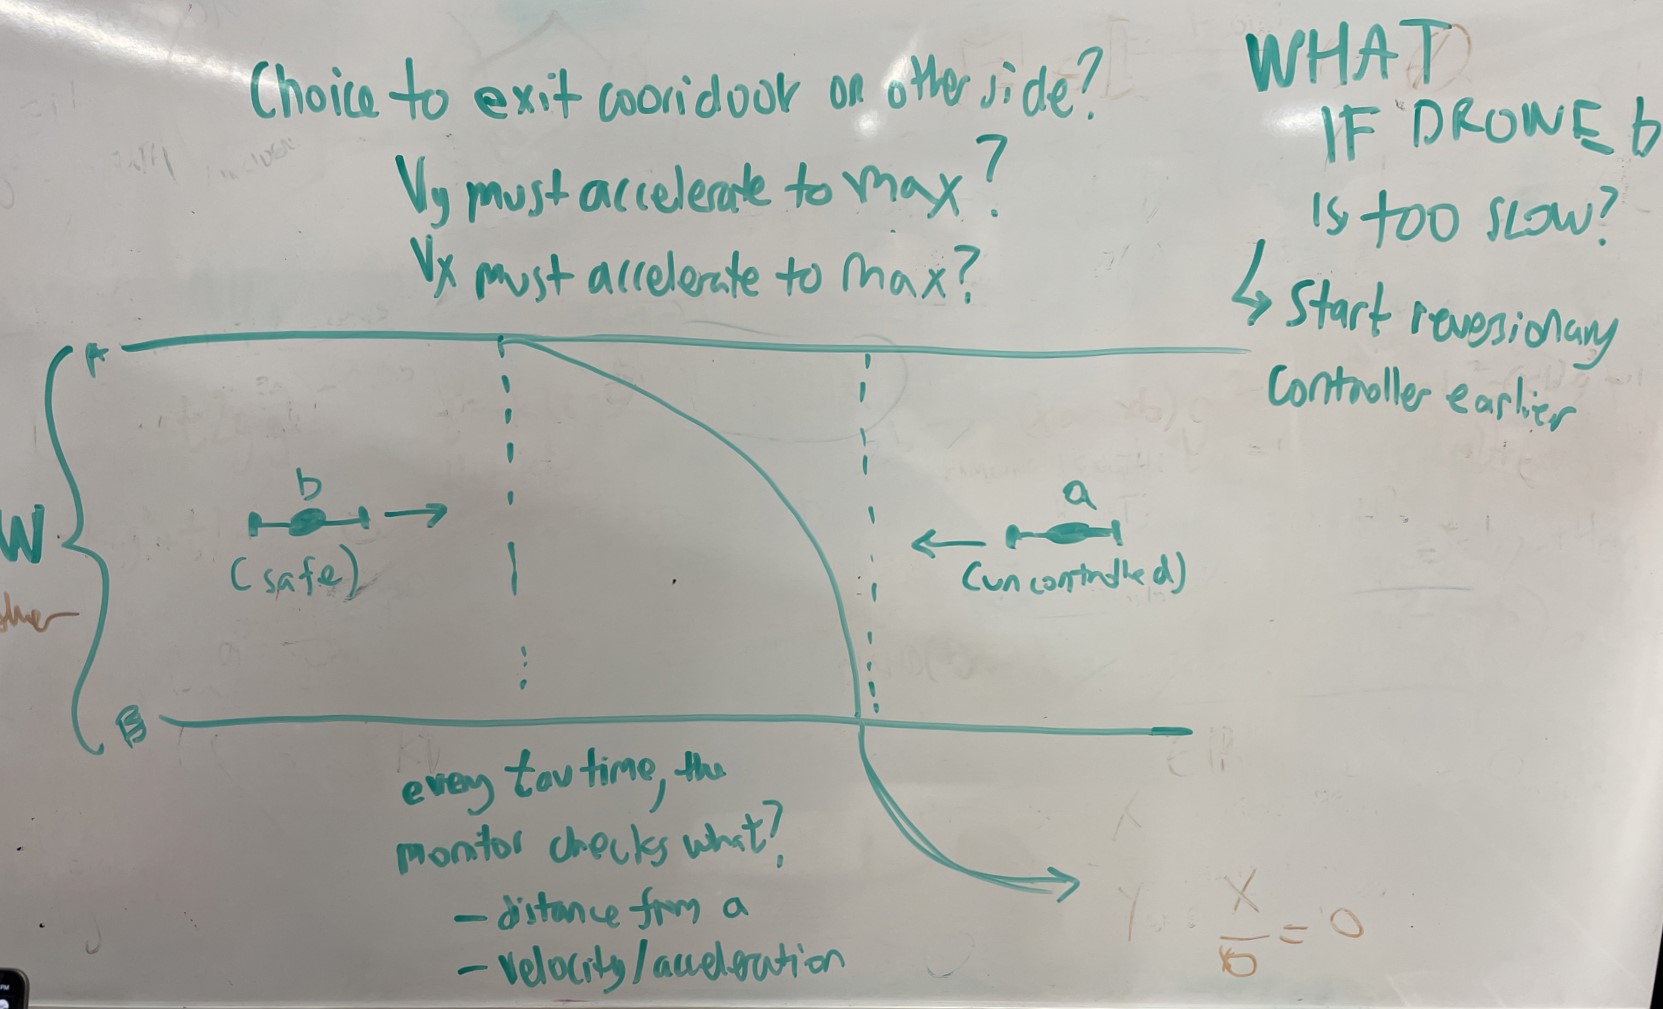 Choice to exit cooridoor on other side?
Vy must accelerate to max?
Vx must accelerate to max?
WHAT
IF DRONE b
IS TOO SLOW?
↳ Start reversionary
Controller earlier
A
W
b
(safe)
a
(uncontrolled)
B
every tau time, the
monitor checks what?
- distance from a
- velocity/acceleration
X
— = 0